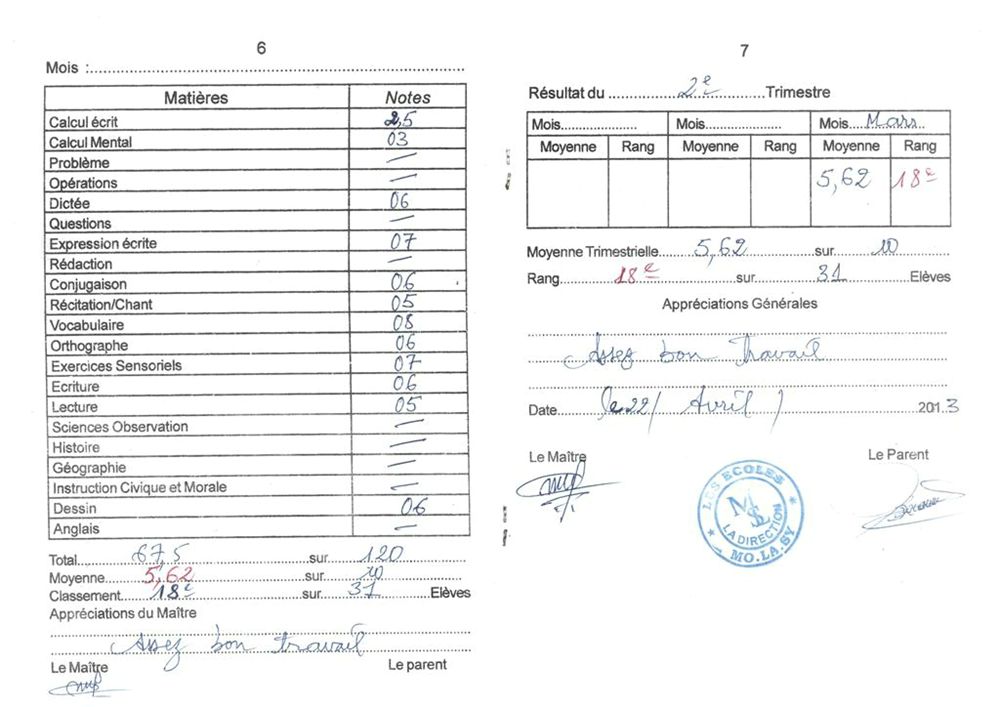 6
Mois :
Matières Notes
Calcul écrit 2,5
Calcul Mental 03
Problème —
Opérations —
Dictée 06
Questions —
Expression écrite 07
Rédaction —
Conjugaison 06
Récitation/Chant 05
Vocabulaire 08
Orthographe 06
Exercices Sensoriels 07
Ecriture 06
Lecture 05
Sciences Observation —
Histoire —
Géographie —
Instruction Civique et Morale —
Dessin 06
Anglais —
Total 67,5 sur 120
Moyenne 5,62 sur 10
Classement 18e sur 31 Elèves
Appréciations du Maître
Assez bon travail
Le Maître Le parent
7
Résultat du 2e Trimestre
Mois Mois Mois Mars
Moyenne Rang Moyenne Rang Moyenne Rang
5,62 18e
Moyenne Trimestrielle 5,62 sur 10
Rang 18e sur 31 Elèves
Appréciations Générales
Assez bon Travail
Date le 22/ Avril / 2013
Le Maître Le Parent
LES ECOLES
LA DIRECTION
MO.LA.SY